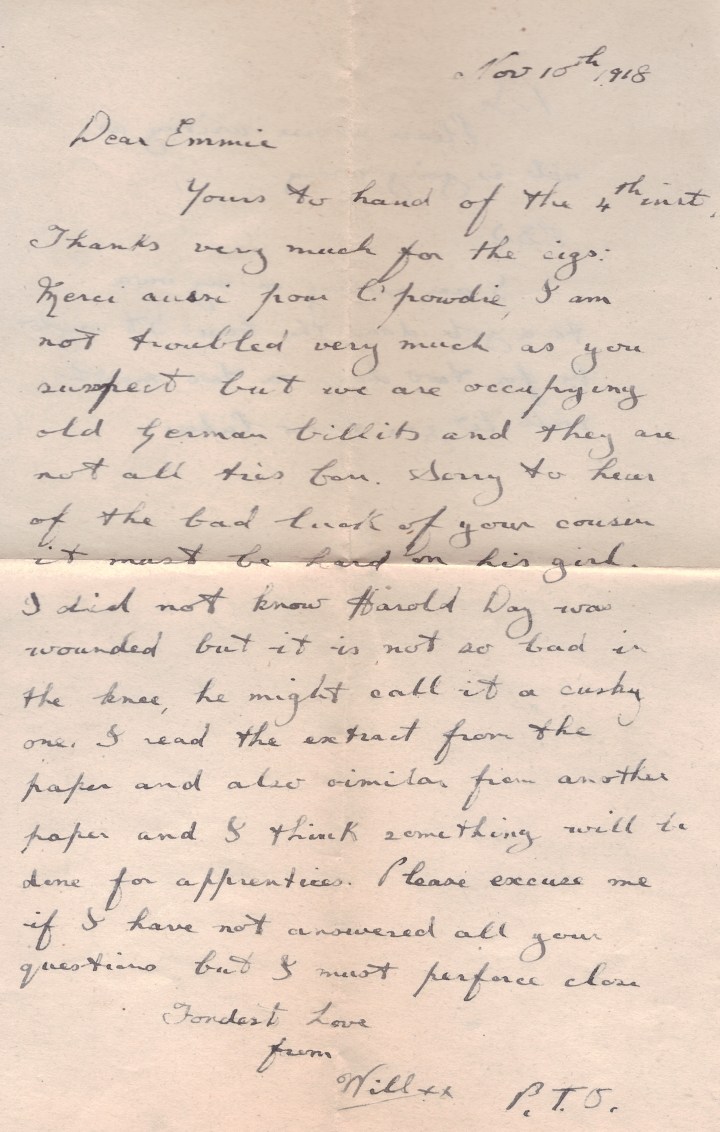 Nov 10th 1918
Dear Emmie
Yours to hand of the 4th inst,
Thanks very much for the cigs:
Merci aussi pour l' powdie, I am
not troubled very much as you
suspect but we are occupying
old German billits and they are
not all très bon. Sorry to hear
of the bad luck of your cousin
it must be hard on his girl.
I did not know Harold Day was
wounded but it is not so bad in
the knee, he might call it a cushy
one. I read the extract from the
paper and also similar from another
paper and I think something will be
done for apprentices. Please excuse me
if I have not answered all your
questions but I must perforce close
Fondest Love
from
Will xx P.T.O.